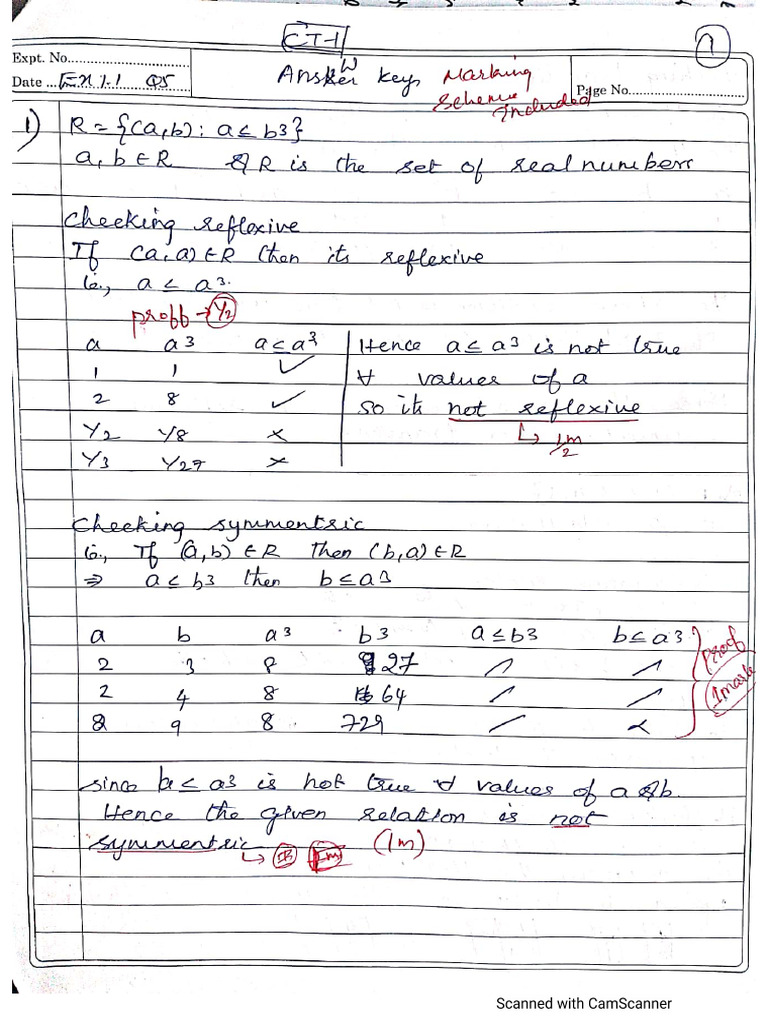 CT-1
1
Expt. No.
Date Ex 1.1 Q5
Answer Key, Marking Scheme Included
Page No.
1) R = {(a,b) : a ≤ b3}
a, b ∈ R & R is the set of real numbers
Checking reflexive
If (a, a) ∈ R then its reflexive
ie., a ≤ a3.
proff → 1/2
a a3 a ≤ a3
1 1 ✓
2 8 ✓
1/2 1/8 ×
1/3 1/27 ×
Hence a ≤ a3 is not true
∀ values of a
so its not reflexive
↳ 1/2 m
Checking symmentric
ie., If (a,b) ∈ R then (b,a) ∈ R
⇒ a ≤ b3 then b ≤ a3
a b a3 b3 a ≤ b3 b ≤ a3
2 3 8 27 ✓ ✓
2 4 8 64 ✓ ✓
2 9 8 729 ✓ ×
proof
1 mark
since b ≤ a3 is not true ∀ values of a & b.
Hence the given relation is not
symmentric (1m)
Scanned with CamScanner